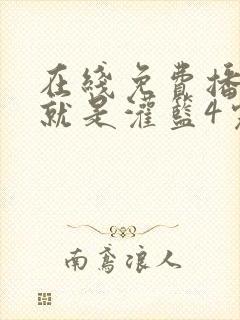 在线免费播
就是灌篮4
南鸢浪人